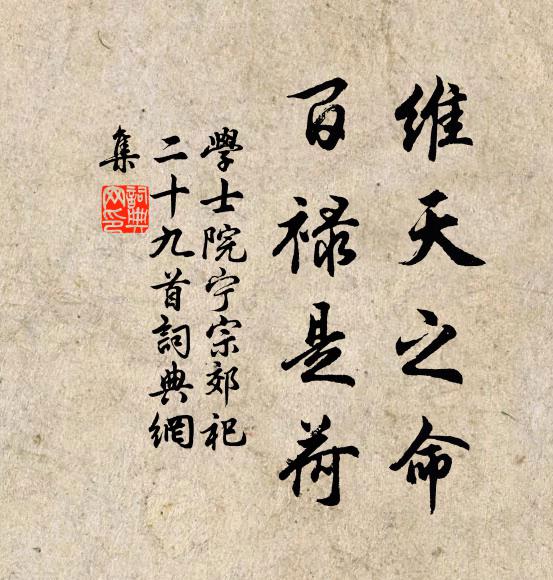 維天之命
百禄是荷
學士院宁宗郊祀
二十九首詞典網
集
詞典
网印